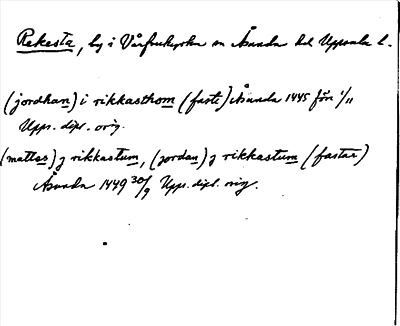 Rekesta, by i Vårfrukyrka sn Åsunda hd Uppsala l.
(jordhan) i rikkasthom (faste) Åsunda 1445 före 1/11
Upps. dipl. orig.
(mattes) j rikkastum, (jordan) j rikkastum (fastar)
Åsunda 1449 30/9 Upps. dipl. orig.